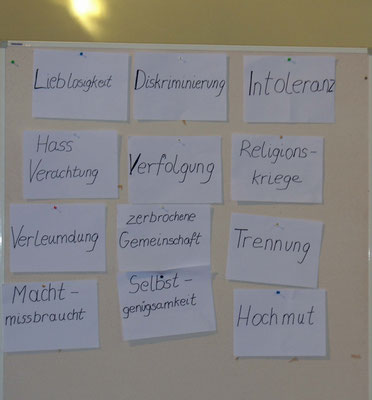 Lieblosigkeit
Diskriminierung
Intoleranz
Hass
Verachtung
Verfolgung
Religions-
kriege
Verleumdung
zerbrochene
Gemeinschaft
Trennung
Macht-
missbraucht
Selbst-
genügsamkeit
Hochmut